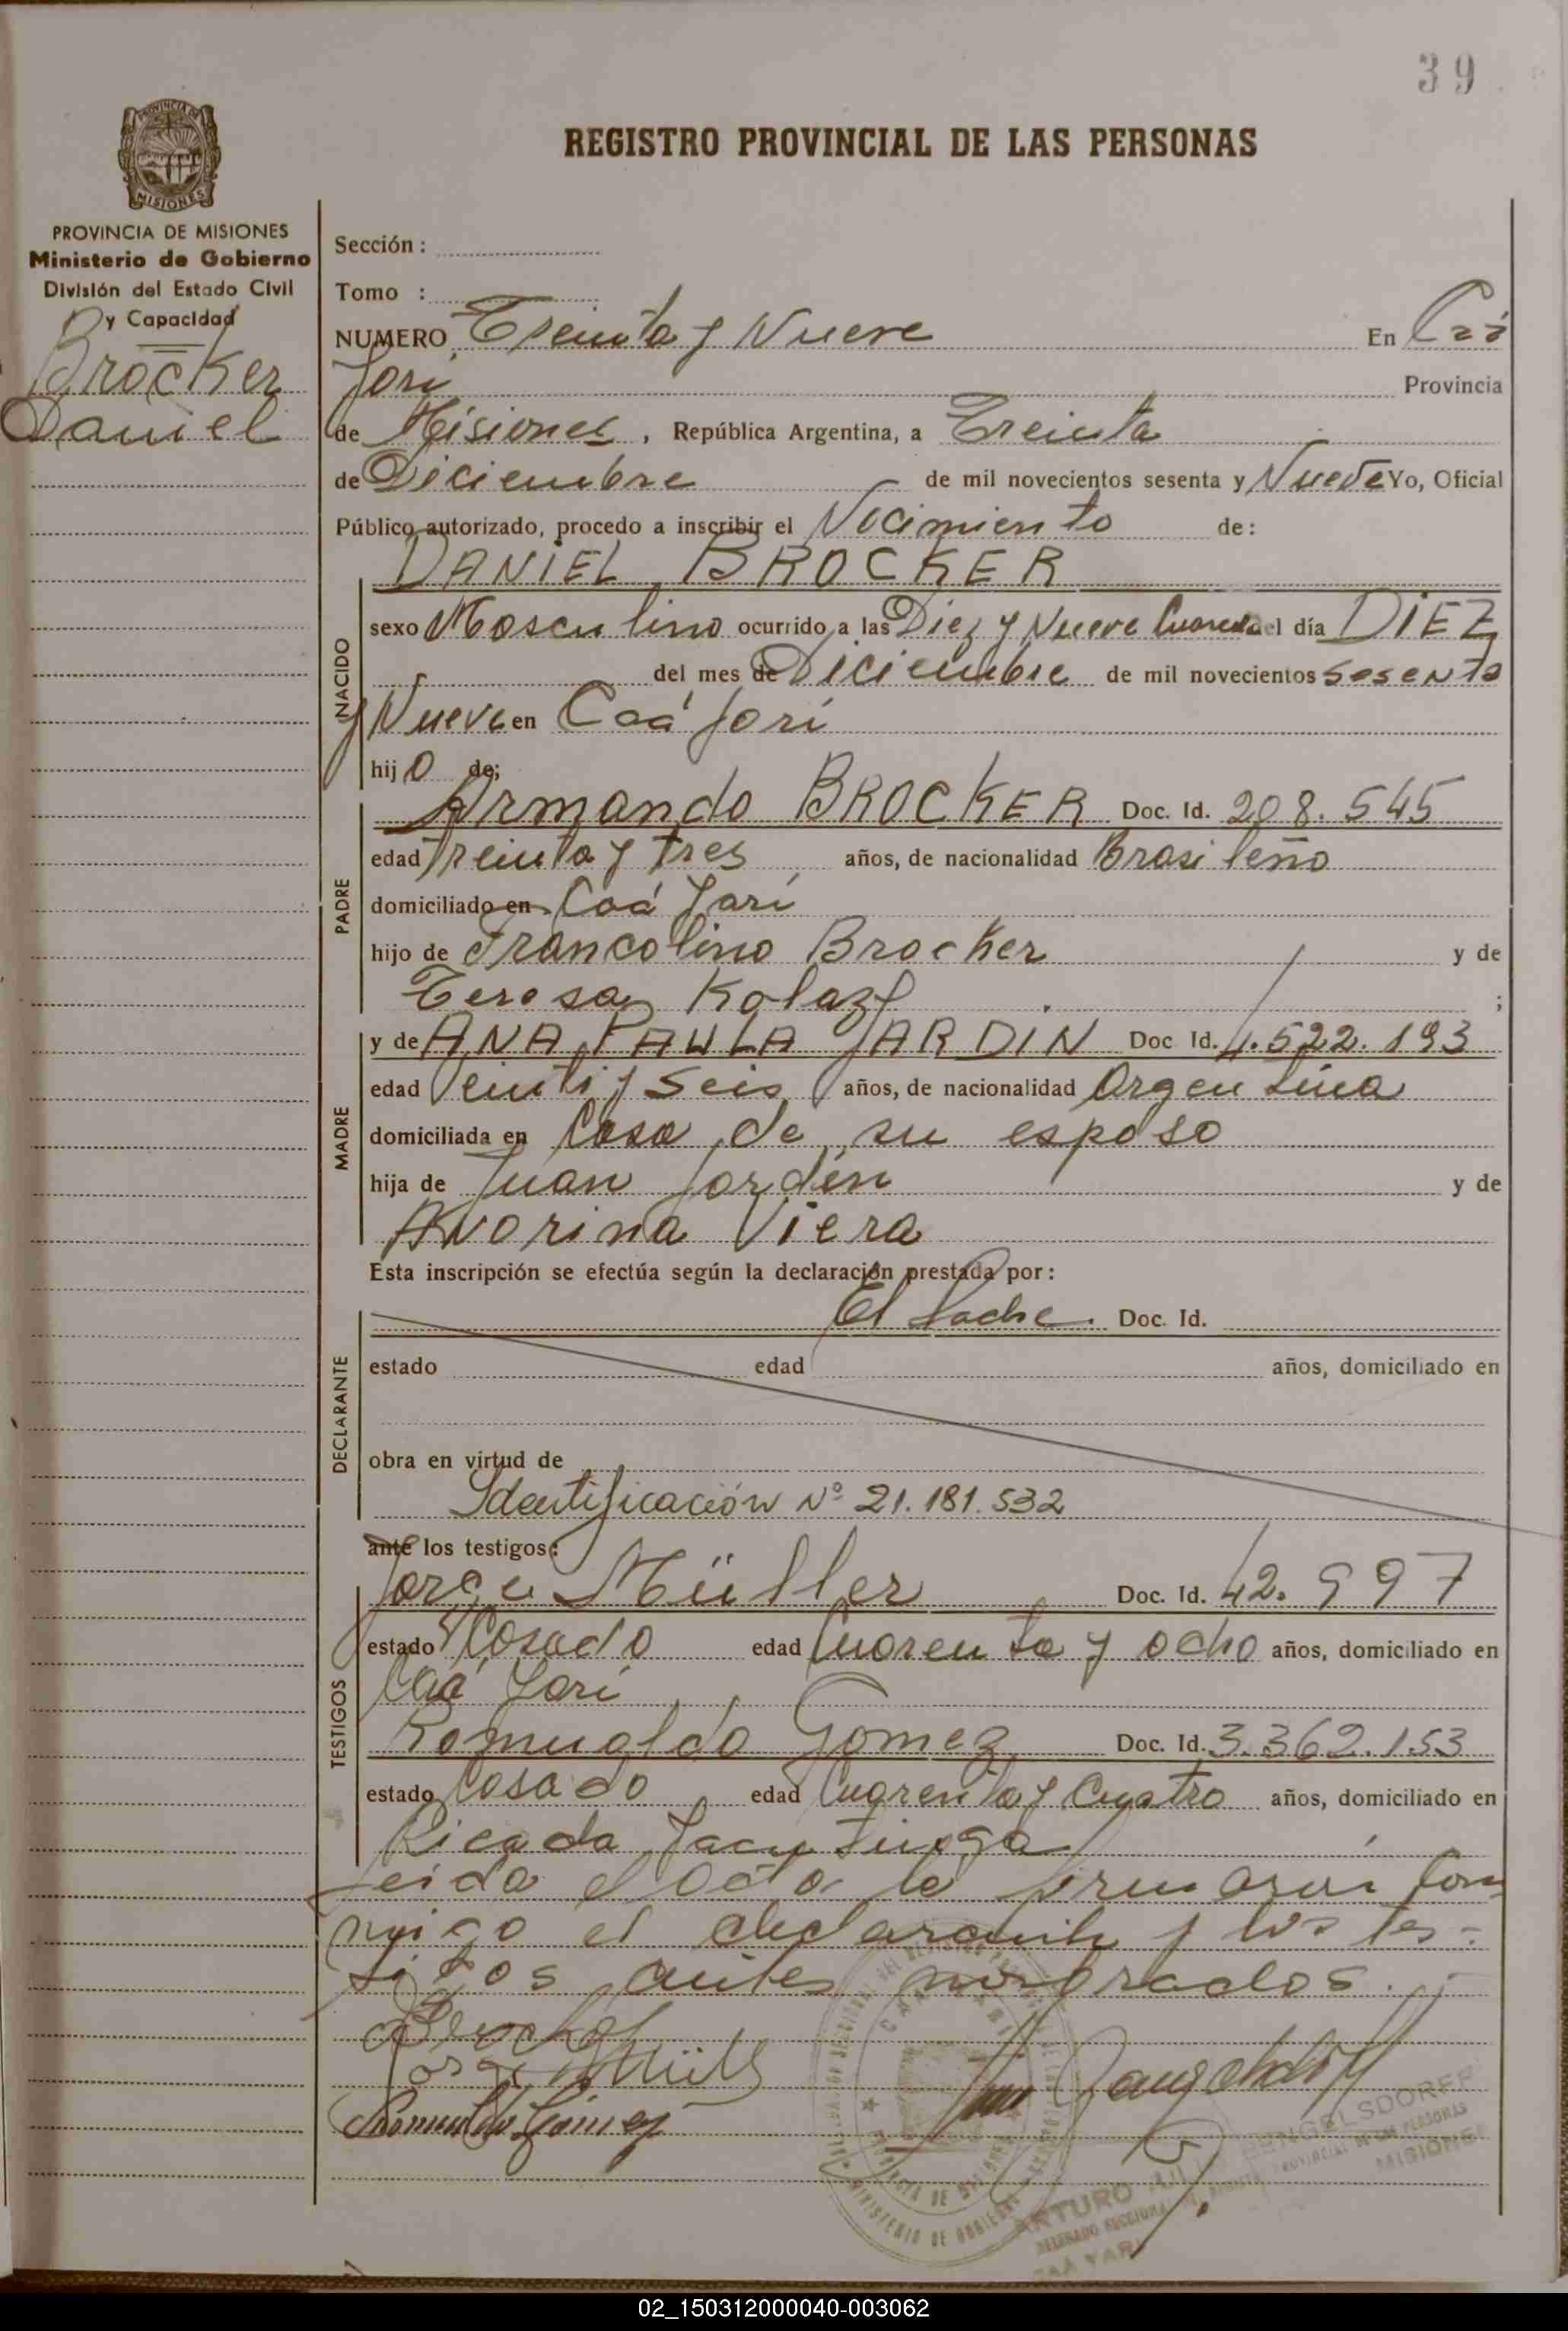 39
REGISTRO PROVINCIAL DE LAS PERSONAS
PROVINCIA DE MISIONES
MISIONES
PROVINCIA DE MISIONES
Ministerio de Gobierno
División del Estado Civil
y Capacidad
Brocker
Daniel
Sección :
Tomo :
NUMERO Treinta y Nueve En Caá
Yarí Provincia
de Misiones, República Argentina, a Treinta
de Diciembre de mil novecientos sesenta y Nueve Yo, Oficial
Público autorizado, procedo a inscribir el Nacimiento de:
DANIEL BROCKER
NACIDO
sexo Masculino ocurrido a las Diez y Nueve del día DIEZ
del mes de Diciembre de mil novecientos sesenta
y Nueve en Caá Yarí
hijo de;
PADRE
Armando BROCKER Doc. Id. 208.545
edad Treinta y Tres años, de nacionalidad Brasileño
domiciliado en Caá Yarí
hijo de Francolino Brocker y de
Teresa ;
MADRE
y de ANA PAULA JARDIN Doc Id. 4.522.193
edad Veinti y Seis años, de nacionalidad Argentina
domiciliada en Casa de su esposo
hija de Juan Jardín y de
Avorina Viera
Esta inscripción se efectúa según la declaración prestada por:
DECLARANTE
El Padre. Doc. Id.
estado edad años, domiciliado en
obra en virtud de
Identificación Nº 21.181.532
ante los testigos:
TESTIGOS
Jorge Müller Doc. Id. 42.997
estado Casado edad Cuarenta y ocho años, domiciliado en
Caá Yarí
Romualdo Gomez Doc. Id. 3.362.153
estado Casado edad Cuarenta y Cuatro años, domiciliado en
Picada Yacutinga
Leída el acta la firmarán con
migo el declarante y los tes=
tigos antes nombrados.
Jorge Müller
Romualdo Gómez
ARTURO ENGELSDORFF
CAA YARI
MISIONES
02_150312000040-003062